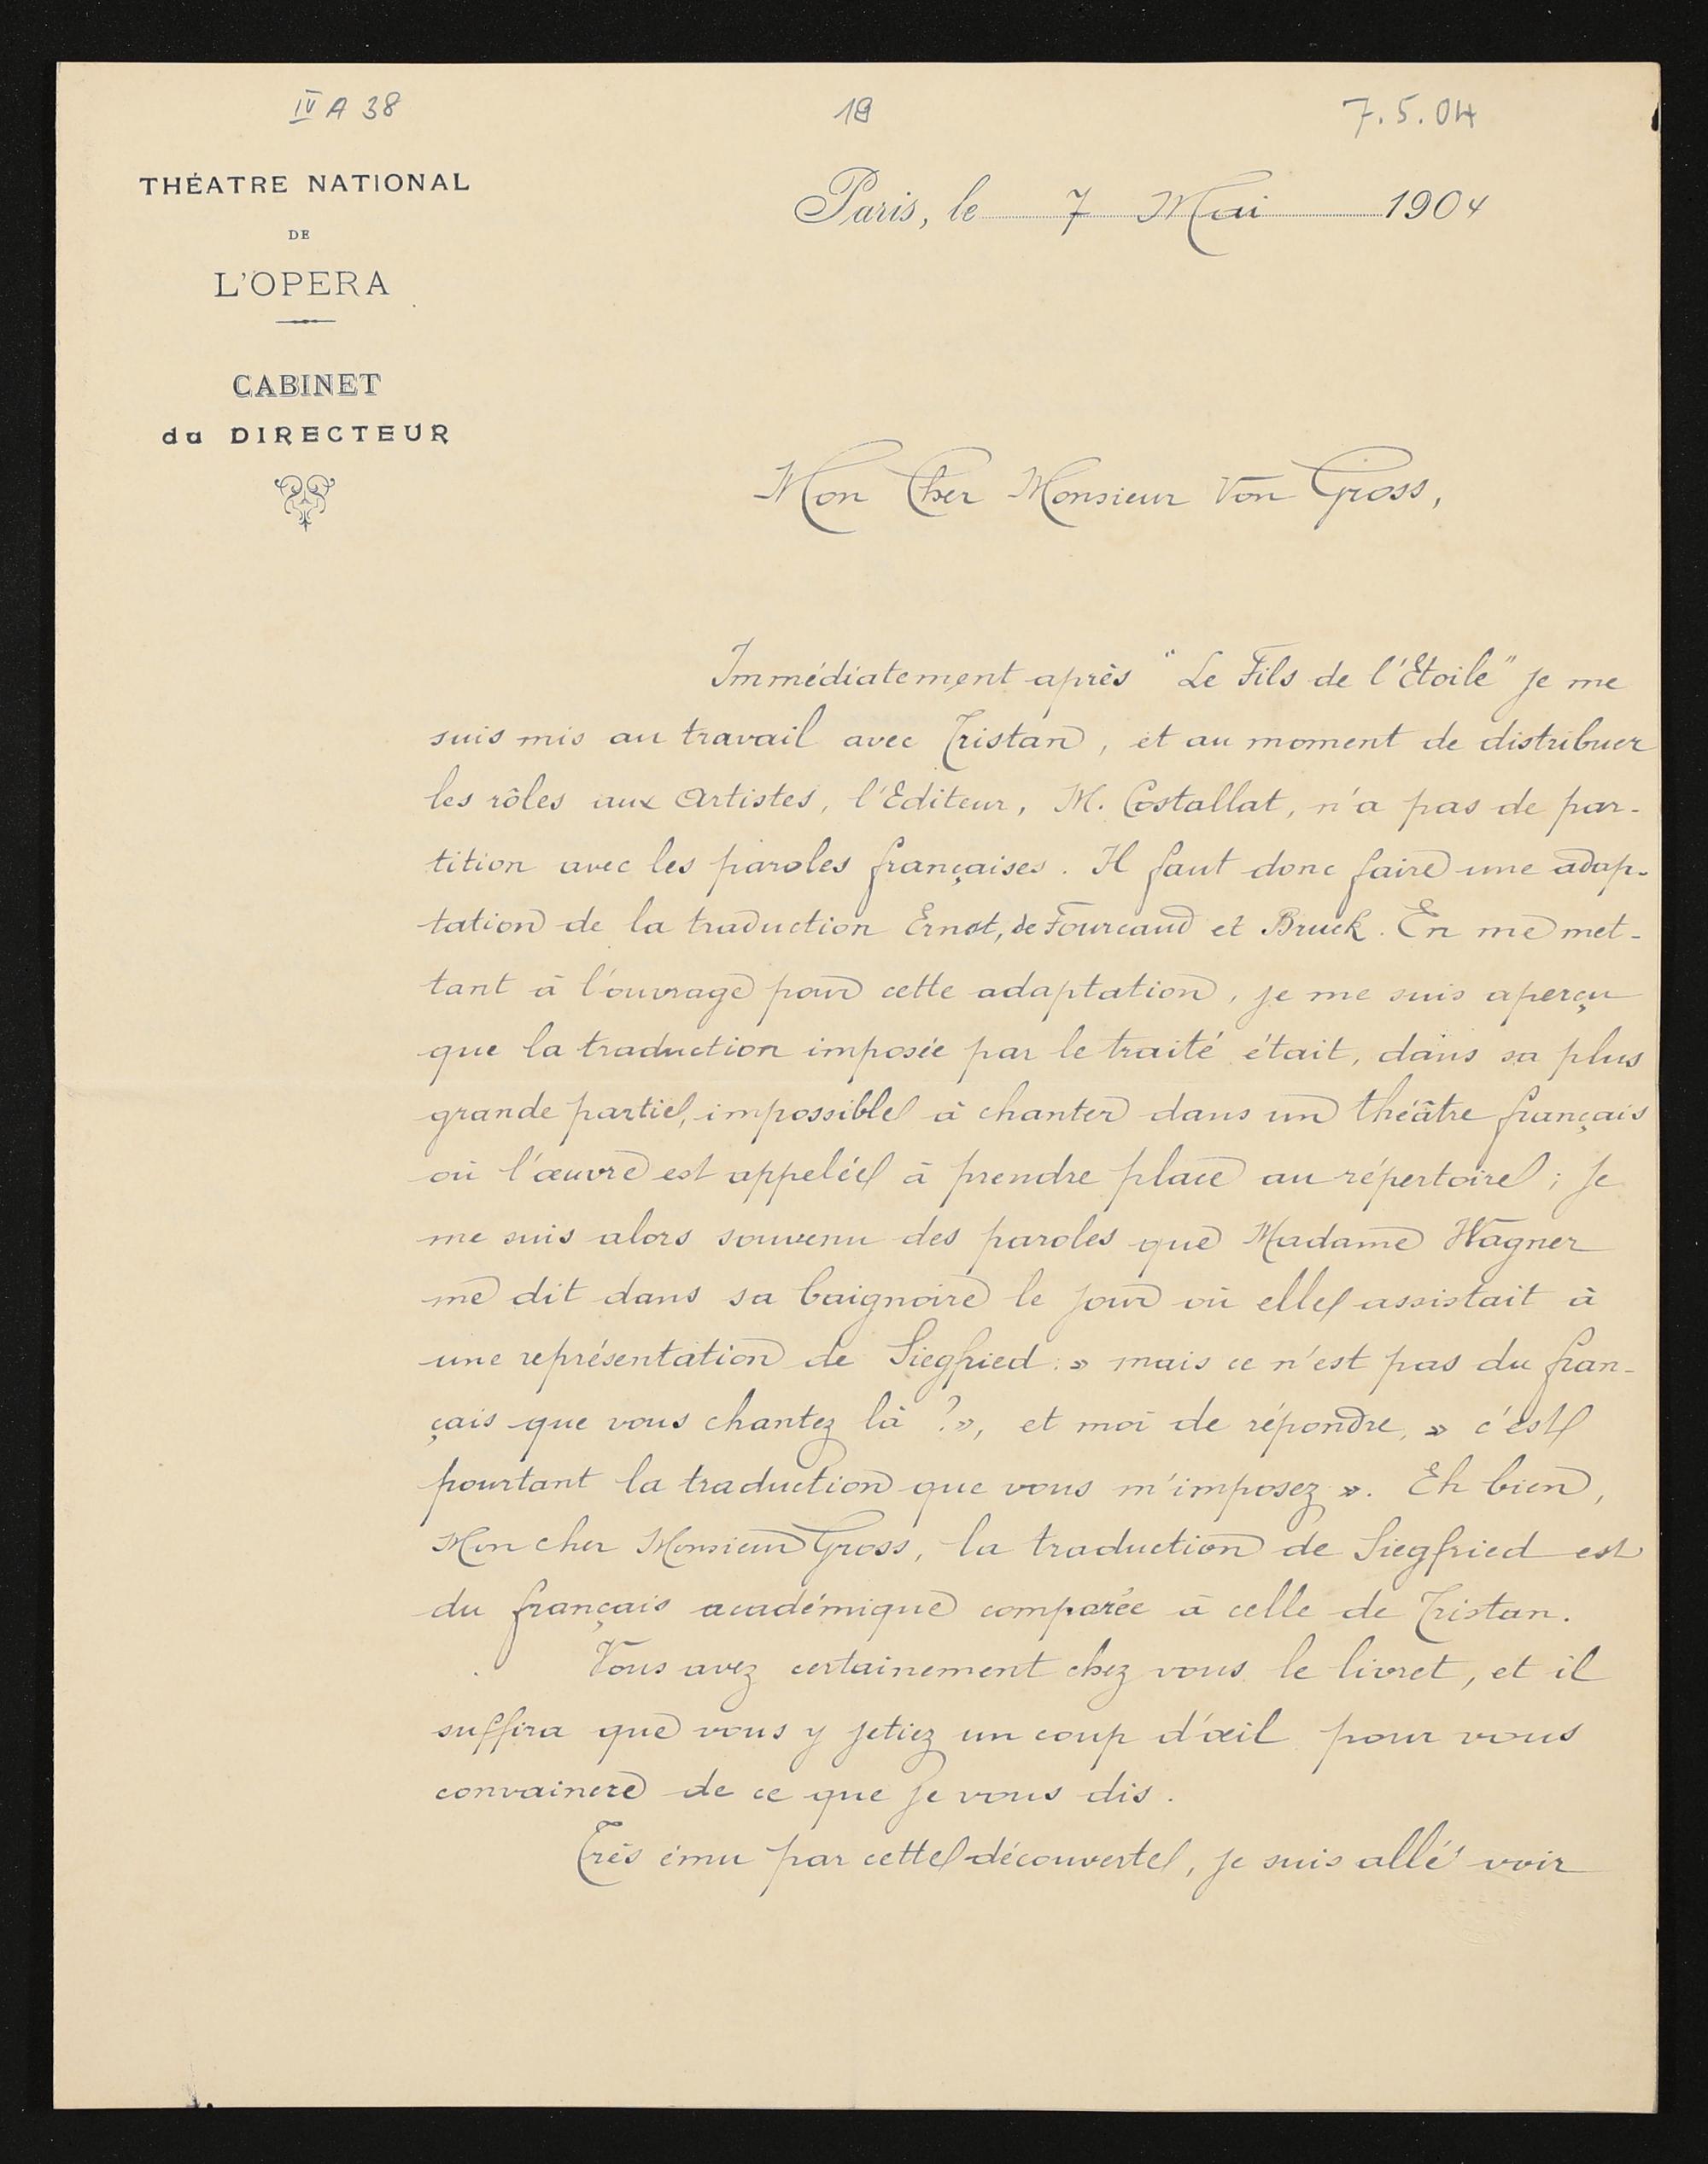 IV A 38
19
7.5.04
THÉATRE NATIONAL
DE
L'OPERA
CABINET
du DIRECTEUR
Paris, le 7 Mai 1904
Mon Cher Monsieur Von Gross,
Immédiatement après "Le Fils de l'Etoile" je me
suis mis au travail avec Tristan, et au moment de distribuer
les rôles aux Artistes, l'Editeur, M. Costallat, n'a pas de par-
tition avec les paroles françaises. Il faut donc faire une adap-
tation de la traduction Ernst, de Fourcaud et Bruck. En me met-
tant à l'ouvrage pour cette adaptation, je me suis aperçu
que la traduction imposée par le traité était, dans sa plus
grande partie, impossible à chanter dans un théâtre français
où l'œuvre est appelée à prendre place au répertoire ; Je
me suis alors souvenu des paroles que Madame Wagner
me dit dans sa baignoire le jour où elle assistait à
une représentation de Siegfried : » mais ce n'est pas du fran-
çais que vous chantez là ? », et moi de répondre, » c'est
pourtant la traduction que vous m'imposez ». Eh bien,
Mon cher Monsieur Gross, la traduction de Siegfried est
du français académique comparée à celle de Tristan.
Vous avez certainement chez vous le livret, et il
suffira que vous y jetiez un coup d'œil pour vous
convaincre de ce que je vous dis.
Très ému par cette découverte, je suis allé voir